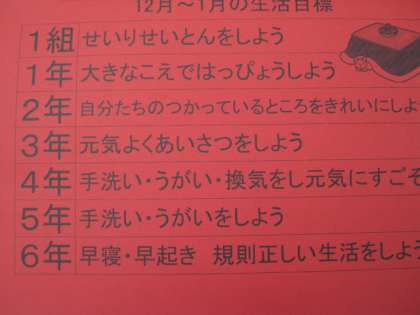 12月～1月の生活目標
1組 せいりせいとんをしよう
1年 大きなこえではっぴょうしよう
2年 自分たちのつかっているところをきれいにしよ
3年 元気よくあいさつをしよう
4年 手洗い・うがい・換気をし元気にすごそ
5年 手洗い・うがいをしよう
6年 早寝・早起き 規則正しい生活をしよ